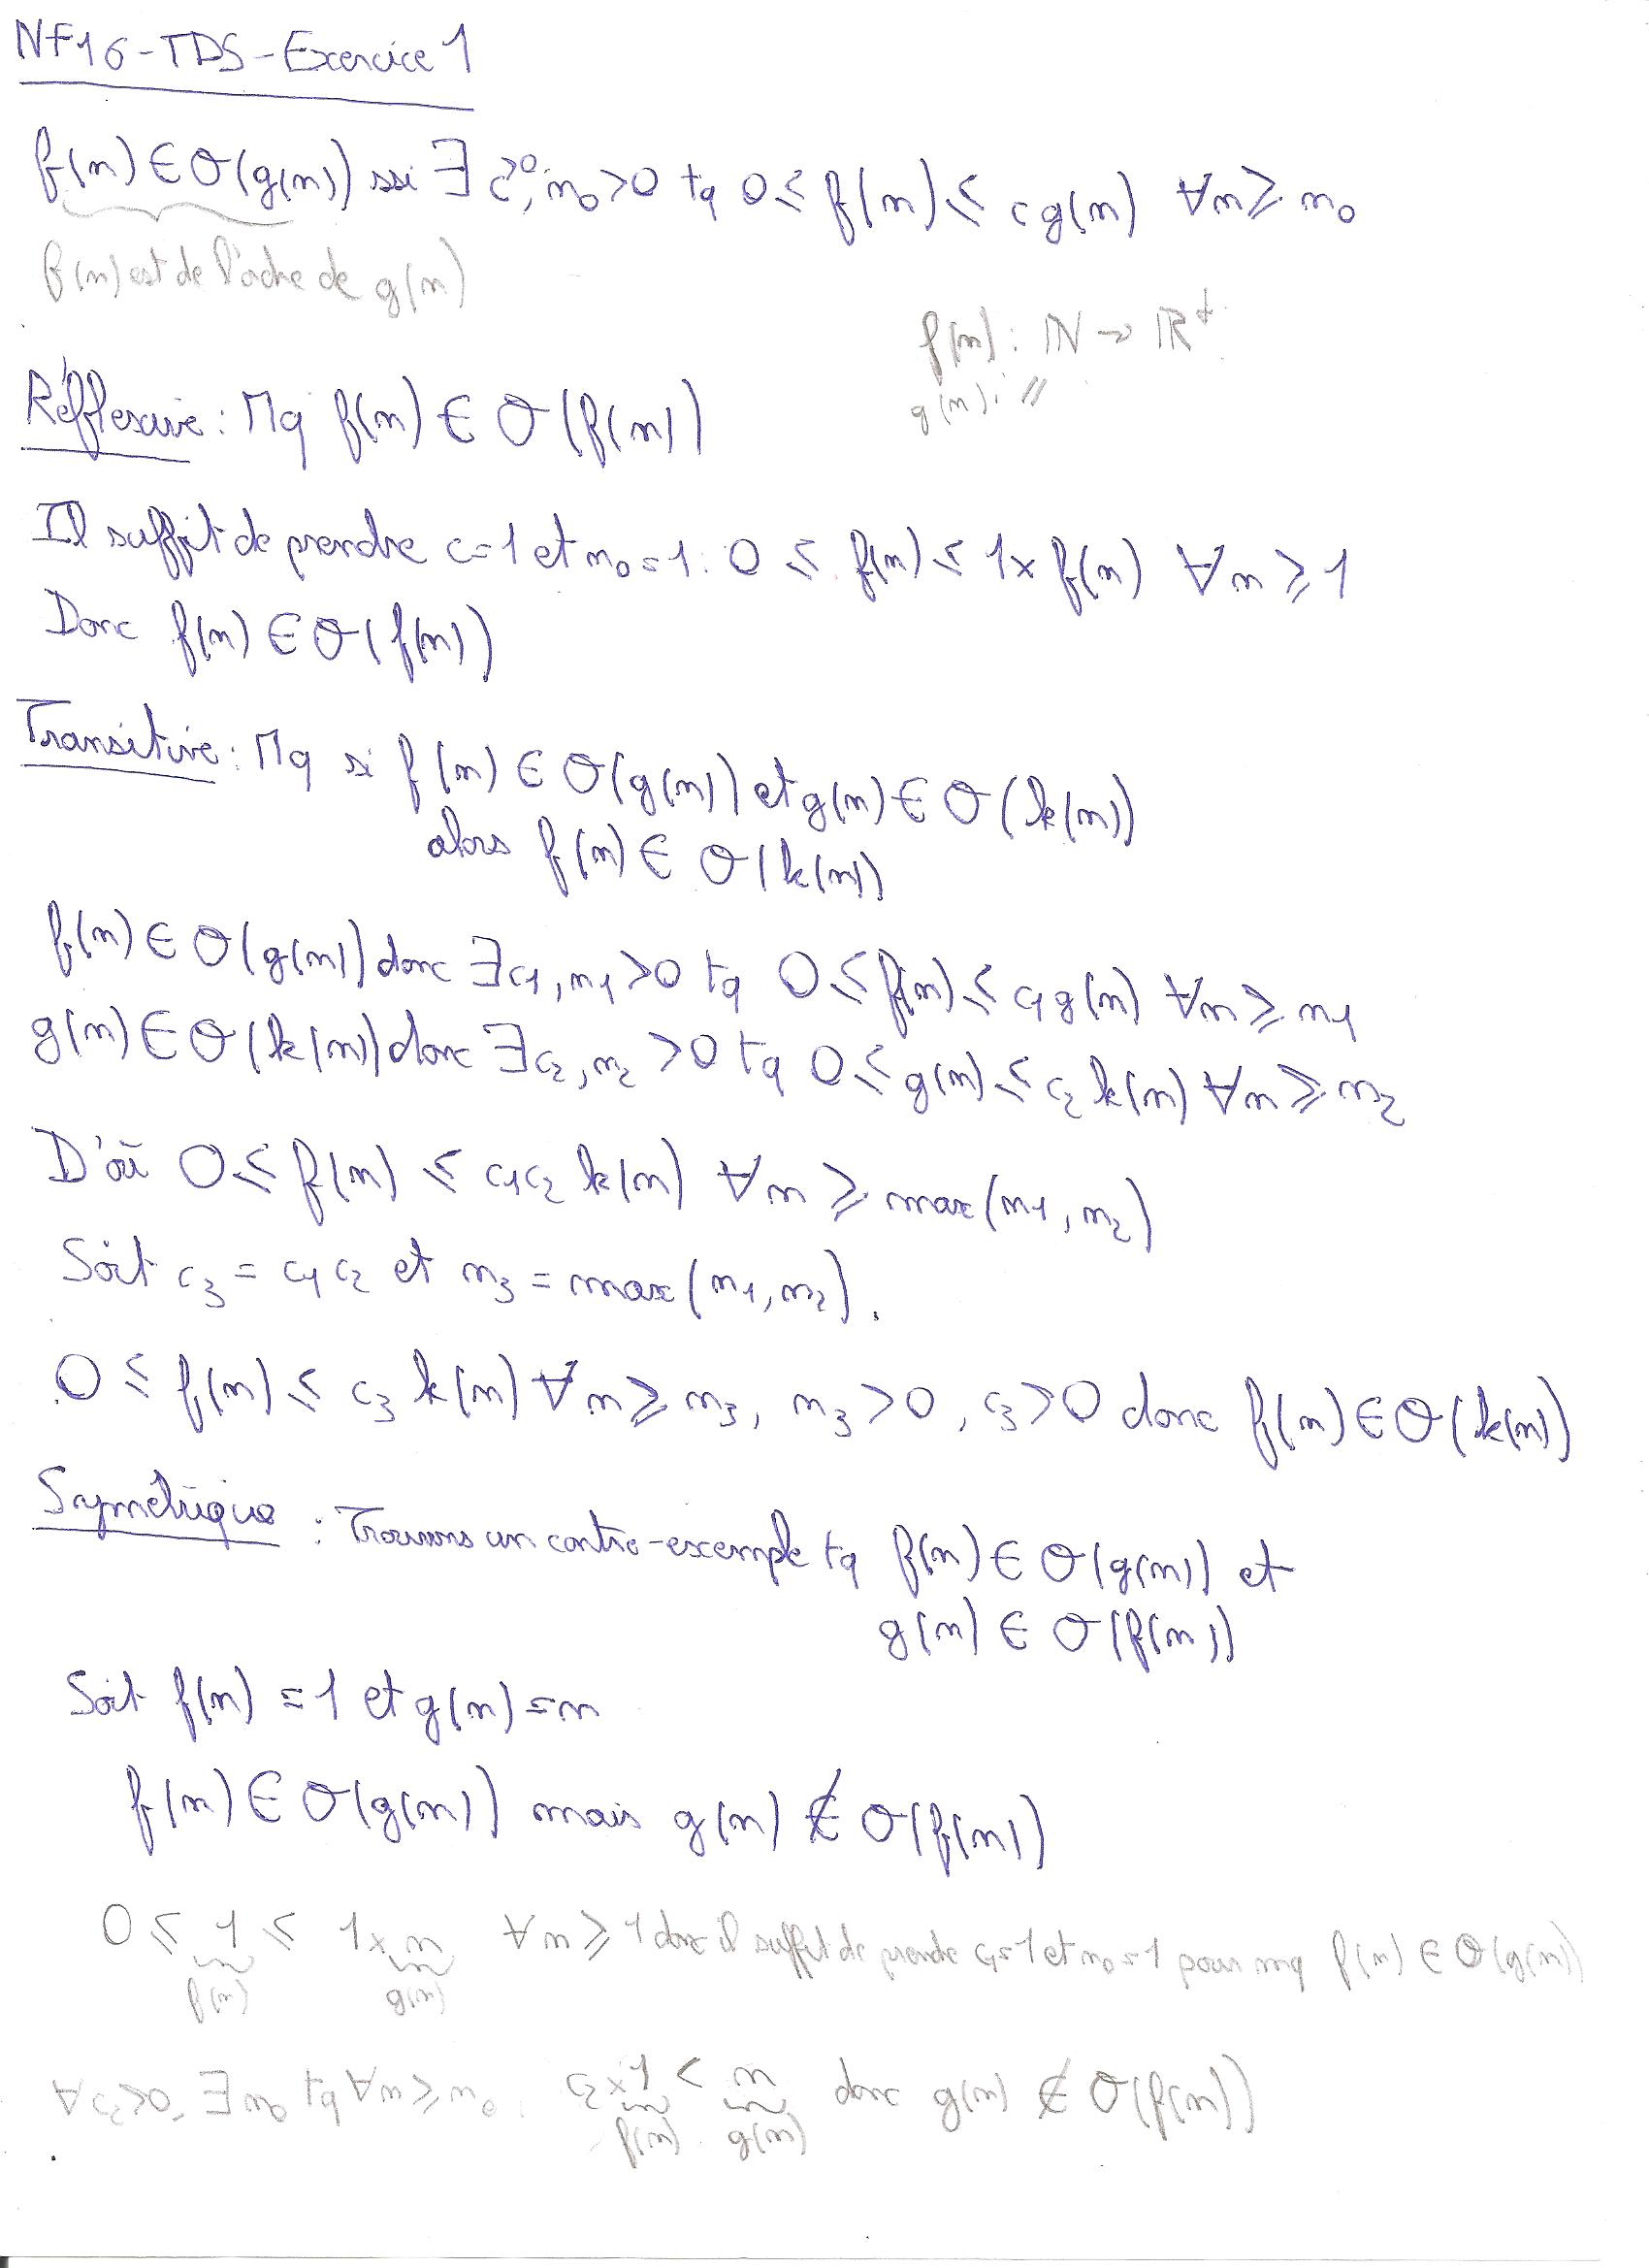 NF16-TD5-Exercice 1
f(n) ∈ O(g(n)) ssi ∃ c>0, n₀>0 tq 0 ≤ f(n) ≤ c g(n) ∀n ≥ n₀
f(n) est de l'ordre de g(n)
f(n) : ℕ → ℝ⁺
g(n) : //
Réflexive : Mq f(n) ∈ O(f(n))
Il suffit de prendre c=1 et n₀=1 : 0 ≤ f(n) ≤ 1×f(n) ∀n ≥ 1
Donc f(n) ∈ O(f(n))
Transitive : Mq si f(n) ∈ O(g(n)) et g(n) ∈ O(k(n))
alors f(n) ∈ O(k(n))
f(n) ∈ O(g(n)) donc ∃ c₁, n₁ >0 tq 0 ≤ f(n) ≤ c₁g(n) ∀n ≥ n₁
g(n) ∈ O(k(n)) donc ∃ c₂, n₂ >0 tq 0 ≤ g(n) ≤ c₂ k(n) ∀n ≥ n₂
D'où 0 ≤ f(n) ≤ c₁c₂ k(n) ∀n ≥ max(n₁, n₂)
Soit c₃ = c₁c₂ et n₃ = max(n₁, n₂).
0 ≤ f(n) ≤ c₃ k(n) ∀n ≥ n₃, n₃ >0, c₃ >0 donc f(n) ∈ O(k(n))
Symétrique : Trouvons un contre-exemple tq f(n) ∈ O(g(n)) et
g(n) ∈ O(f(n))
Soit f(n) = 1 et g(n) = n
f(n) ∈ O(g(n)) mais g(n) ∉ O(f(n))
0 ≤ 1 ≤ 1×n ∀n ≥ 1 donc il suffit de prendre c₁=1 et n₀=1 pour mq f(n) ∈ O(g(n))
f(n) g(n)
∀c₂>0, ∃ n₀ tq ∀n ≥ n₀ : c₂×1 < n donc g(n) ∉ O(f(n))
f(n) g(n)